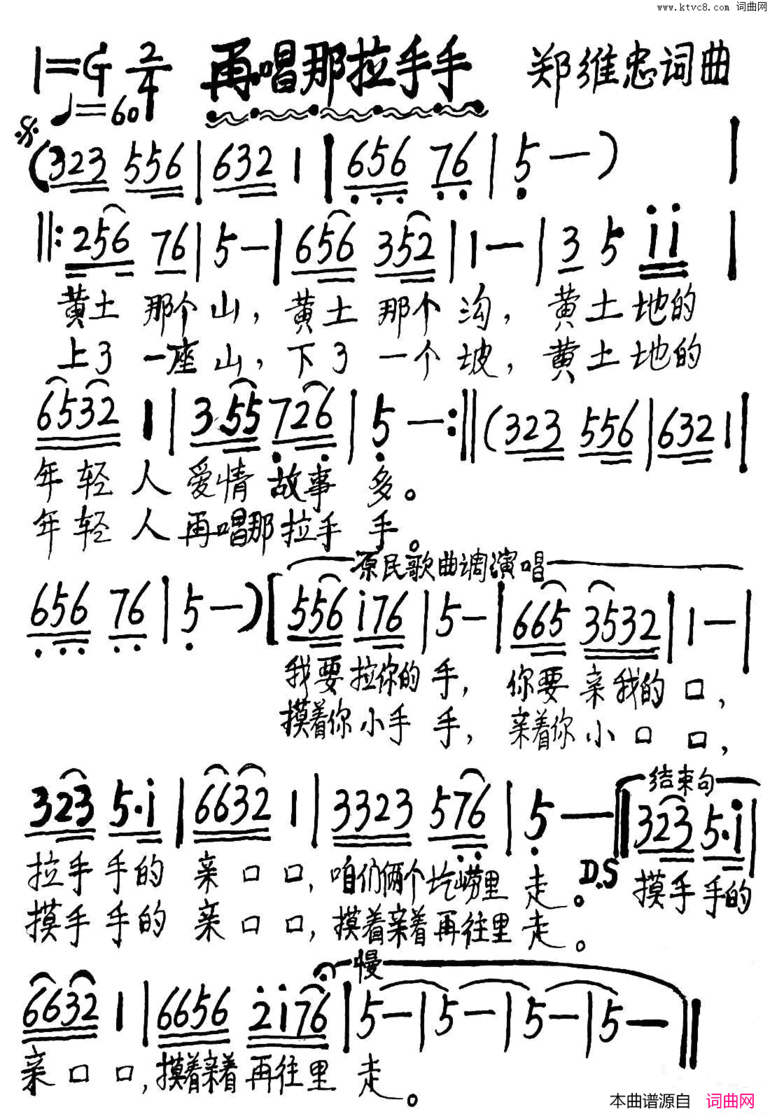 www.ktvc8.com 词曲网
1=G 2/4 再唱那拉手手 郑维忠词曲
♩=60
(323 556 | 632 1 | 656 76 | 5 — ) |
‖: 256 76 | 5 — | 656 352 | 1 — | 3 5 i i |
黄土 那个山, 黄土 那个 沟, 黄土地的
上了 一座山, 下了 一个 坡, 黄土地的
6532 1 | 355 726 | 5 — :‖ (323 556 | 632 1 |
年轻人 爱情故事 多。
年轻人再唱那拉手 手。
原民歌曲调演唱
656 76 | 5 — ) [ 556 i76 | 5 — | 665 3532 | 1 — |
我要拉你的手, 你要亲我的口,
摸着你小手手, 亲着你小口口,
结束句
323 5·i | 6632 1 | 3323 576 | 5 — ‖ 323 5·i |
拉手手的 亲口口, 咱们俩个圪崂里 走。 D.S 摸手手的
摸手手的 亲口口, 摸着亲着再往里走。
慢
6632 1 | 6656 2i76 | 5 — | 5 — | 5 — | 5 — ‖
亲口口, 摸着亲着再往里 走。
本曲谱源自 词曲网